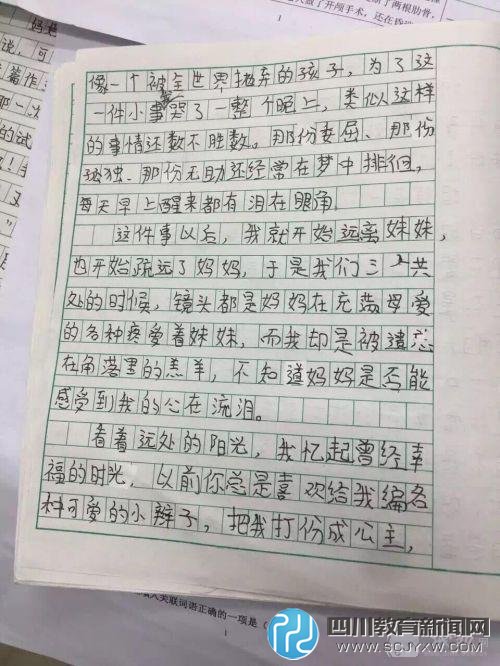 了开颅手术，还在昏
了两根肋骨，
妈
说，可
篇作
那一次
的试
又
像一个被全世界抛弃的孩子，为了这
一件小事哭了一整个晚上，类似这样
的事情还数不胜数。那份委屈、那份
孤独、那份无助还经常在梦中排徊，
每天早上醒来都有泪在眼角。
这件事以后，我就开始远离妹妹，
也开始疏远了妈妈，于是我们三人共
处的时候，镜头都是妈妈在充满母爱
的各种疼爱着妹妹，而我却是被遗忘
在角落里的羔羊，不知道妈妈是否能
感受到我的心在流泪。
看着远处的阳光，我忆起曾经幸
福的时光，以前你总是喜欢给我编各
种可爱的小辫子，把我打份成公主，
填入关联词语正确的一项是（
1
四川教育新闻网
WWW.SCJYXW.COM